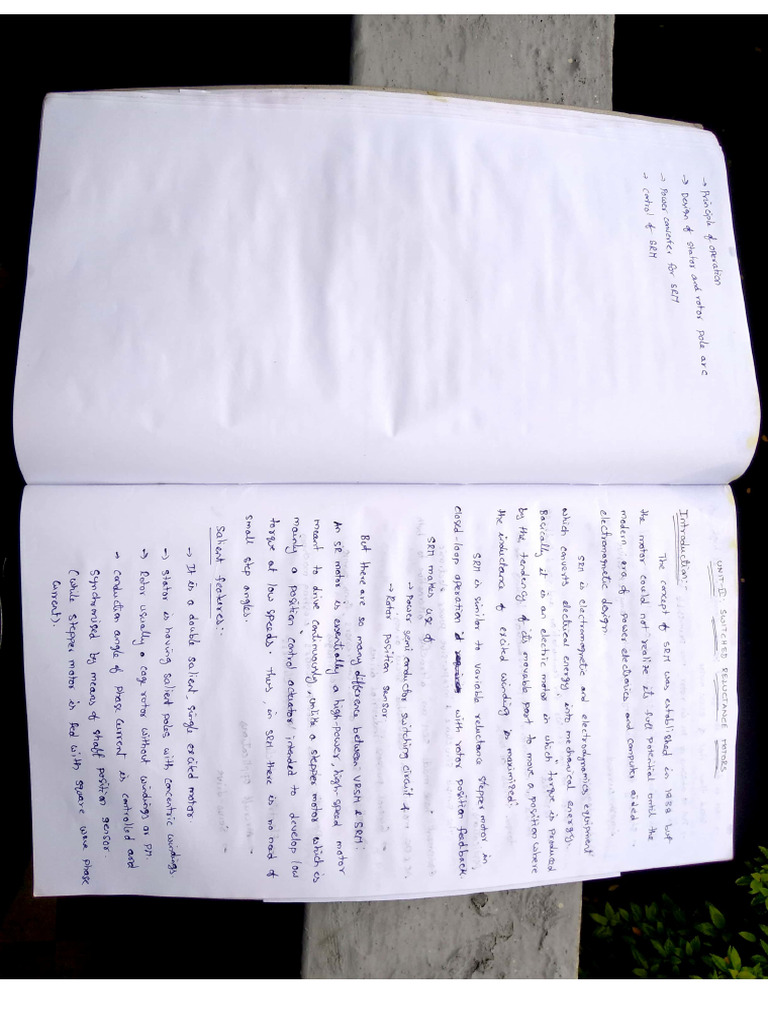 → Principle of operation
→ Design of stator and rotor pole arc
→ Power converter for SRM
→ Control of SRM
UNIT-II: SWITCHED RELUCTANCE MOTORS
Introduction:
The concept of SRM was established in 1838 but
the motor could not realize its full potential until the
modern era of power electronics and computer aided
electromagnetic design.
SRM is electromagnetic and electrodynamics equipment
which converts electrical energy into mechanical energy.
Basically, it is an electric motor in which torque is produced
by the tendency of its movable part to move a position where
the inductance of excited winding is maximised.
SRM is similar to variable reluctance stepper motor in
closed-loop operation with rotor position feedback
SRM makes use of
→ Power semi conductor switching circuit &
→ Rotor position sensor
But there are so many difference between VRSM & SRM:
An SR motor is essentially a high-power, high-speed motor
meant to drive continuously, unlike a stepper motor which is
mainly a position control actuator intended to develop low
torque at low speeds. Thus, in SRM there is no need of
small step angles.
Salient features:
→ It is a double salient, single excited motor
→ Stator is having salient poles with concentric windings.
→ Rotor usually a cage rotor without windings or PM.
→ Conduction angle of phase current is controlled and
synchronised by means of shaft position sensor
(while stepper motor is fed with square wave phase
current).